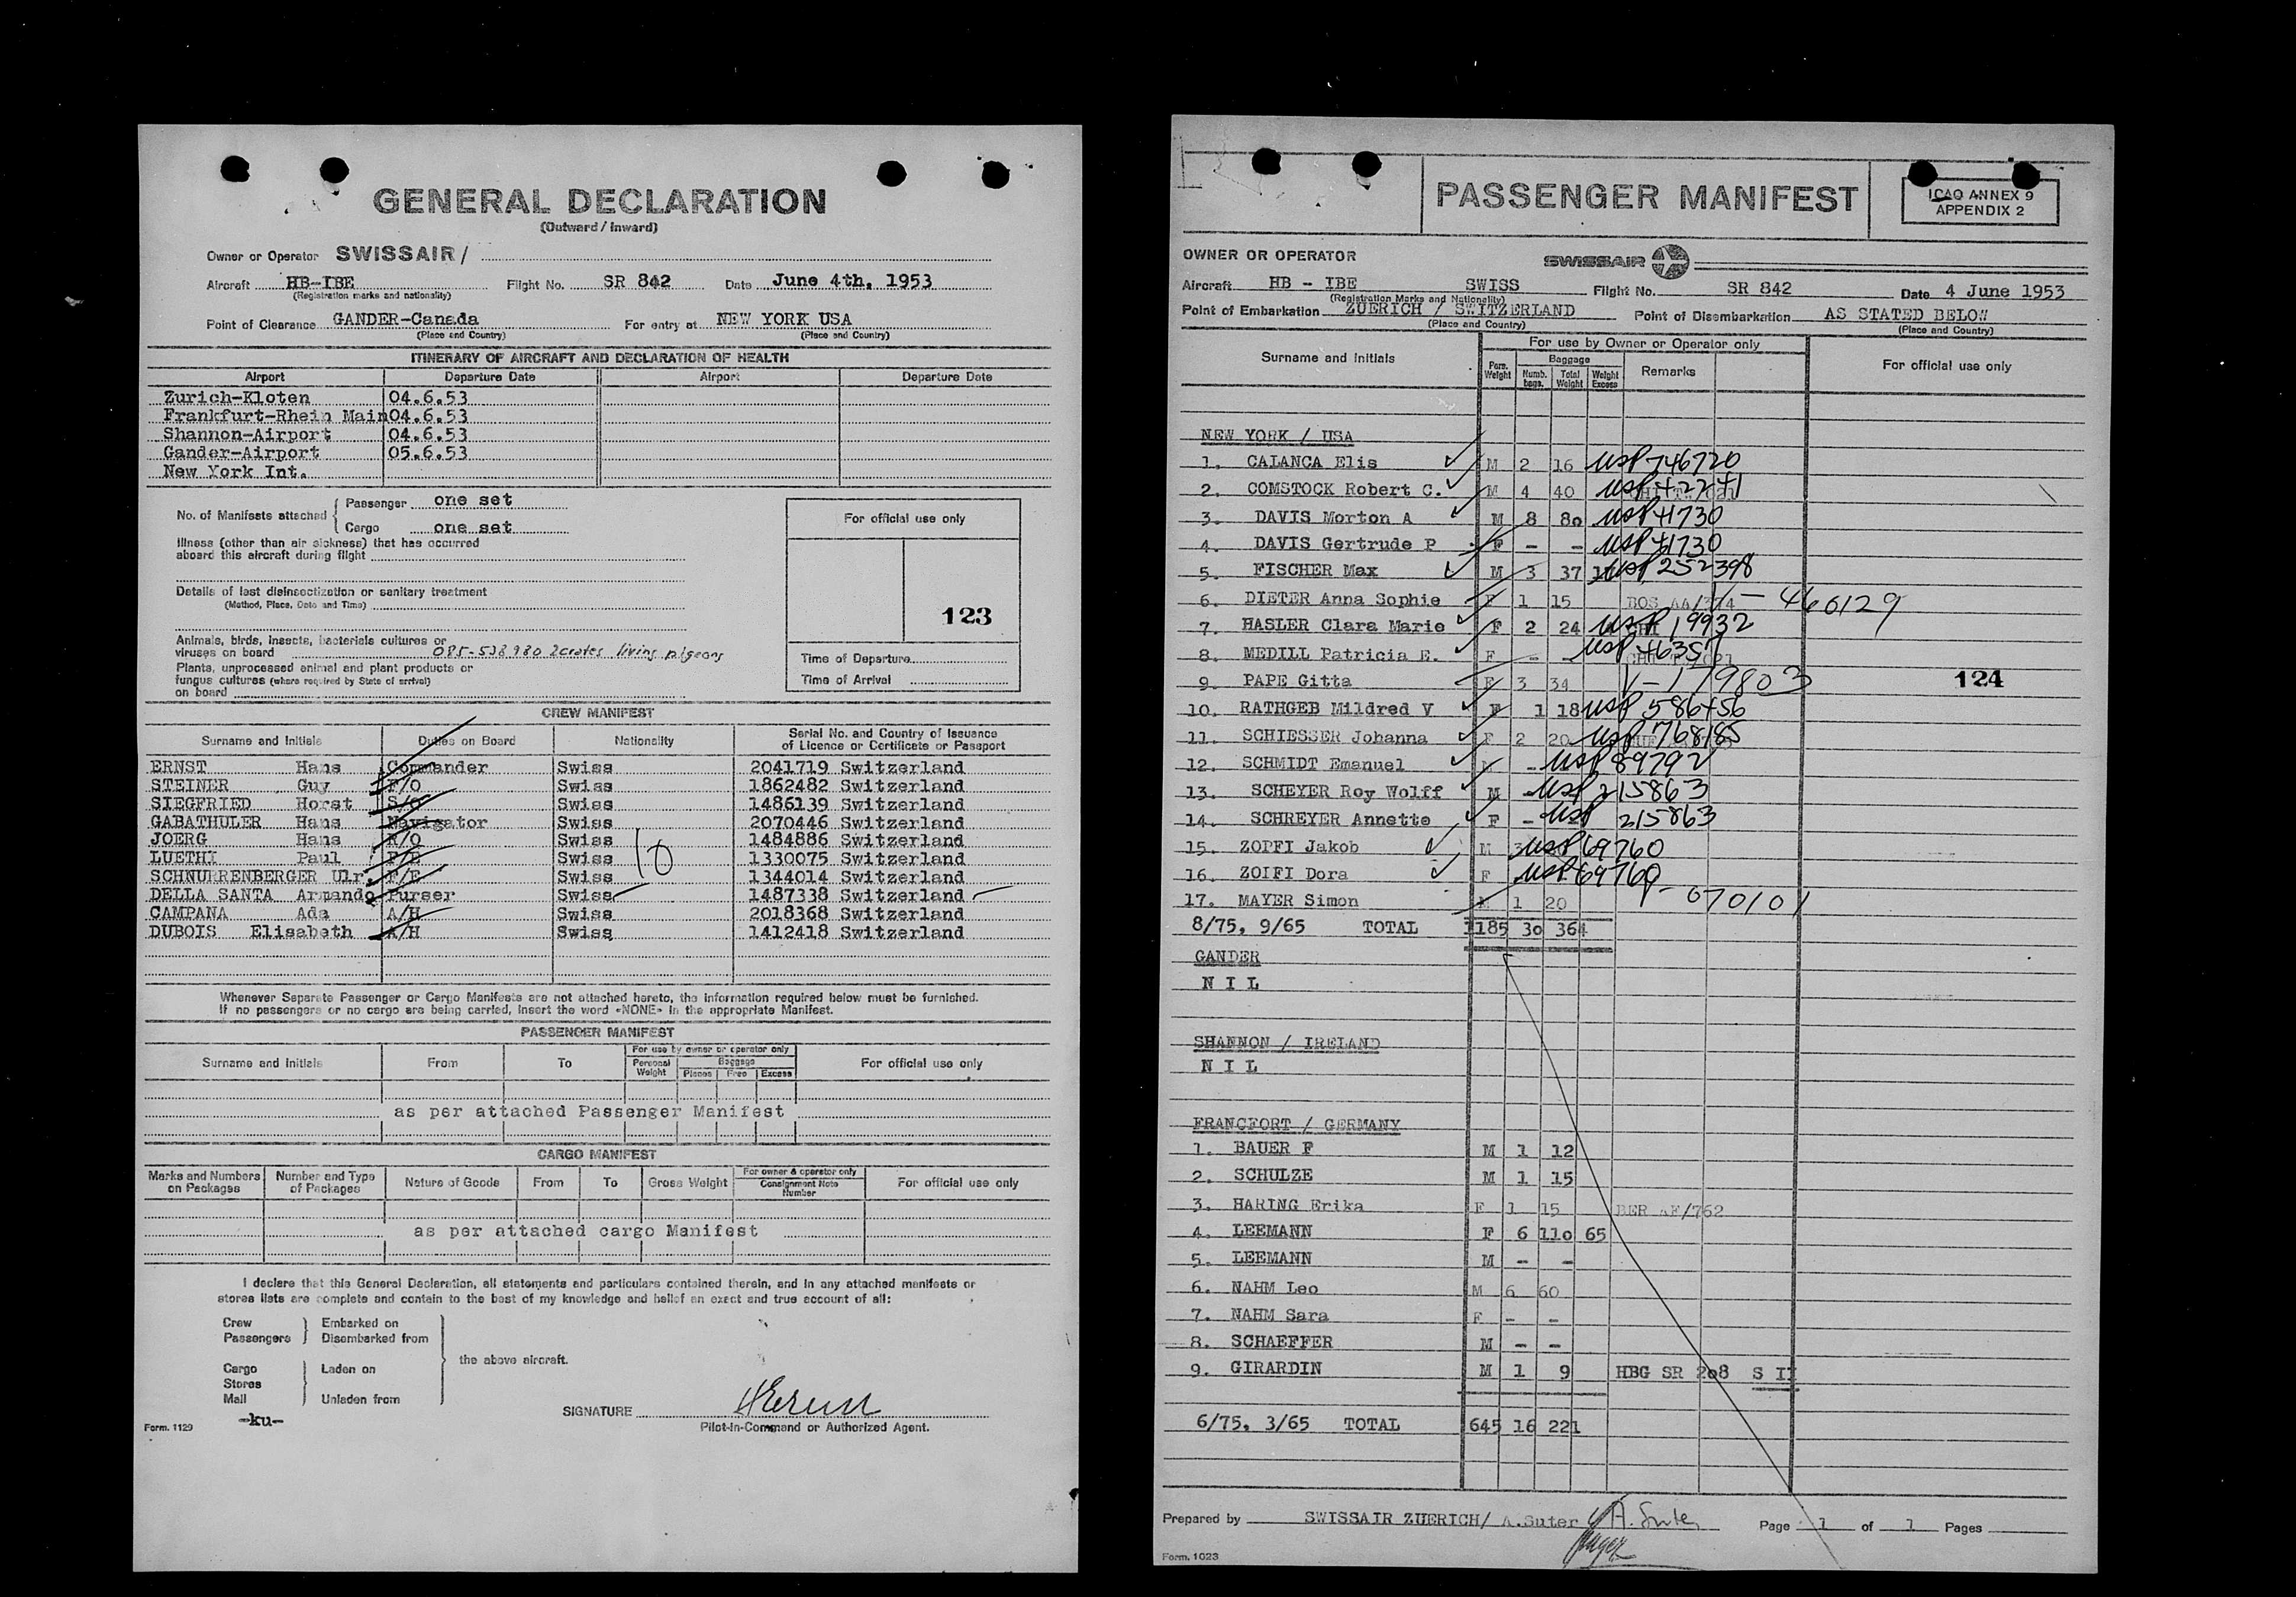 GENERAL DECLARATION
(Outward / Inward)
Owner or Operator SWISSAIR /
Aircraft HB-IBE Flight No. SR 842 Date June 4th, 1953
(Registration marks and nationality)
Point of Clearance GANDER-Canada For entry at NEW YORK USA
(Place and Country) (Place and Country)
ITINERARY OF AIRCRAFT AND DECLARATION OF HEALTH
Airport Departure Date Airport Departure Date
Zurich-Kloten 04.6.53
Frankfurt-Rhein Main 04.6.53
Shannon-Airport 04.6.53
Gander-Airport 05.6.53
New York Int.
No. of Manifests attached { Passenger one set
Cargo one set
For official use only
Illness (other than air sickness) that has occurred
aboard this aircraft during flight
Details of last disinsectization or sanitary treatment
(Method, Place, Date and Time)
123
Animals, birds, insects, bacterials cultures or
viruses on board 2crates living pigeons
Plants, unprocessed animal and plant products or
fungus cultures (where required by State of arrival)
on board
Time of Departure
Time of Arrival
CREW MANIFEST
Surname and Initials Duties on Board Nationality Serial No. and Country of Issuance
of Licence or Certificate or Passport
ERNST Hans Commander Swiss 2041719 Switzerland
STEINER Guy F/O Swiss 1862482 Switzerland
SIEGFRIED Horst S/O Swiss 1486139 Switzerland
GABATHULER Hans Navigator Swiss 2070446 Switzerland
JOERG Hans R/O Swiss 1484886 Switzerland
LUETHI Paul F/E Swiss 1330075 Switzerland
SCHNURRENBERGER Ulr. F/E Swiss 1344014 Switzerland
DELLA SANTA Armando Purser Swiss 1487338 Switzerland
CAMPANA Ada A/H Swiss 2018368 Switzerland
DUBOIS Elisabeth A/H Swiss 1412418 Switzerland
10
Whenever Separate Passenger or Cargo Manifests are not attached hereto, the information required below must be furnished.
If no passengers or no cargo are being carried, insert the word «NONE» in the appropriate Manifest.
PASSENGER MANIFEST
Surname and Initials From To For use by owner or operator only For official use only
Personal Weight Baggage
Pieces Free Excess
as per attached Passenger Manifest
CARGO MANIFEST
Marks and Numbers on Packages Number and Type of Packages Nature of Goods From To Gross Weight For owner & operator only Consignment Note Number For official use only
as per attached cargo Manifest
I declare that this General Declaration, all statements and particulars contained therein, and in any attached manifests or
stores lists are complete and contain to the best of my knowledge and belief an exact and true account of all:
Crew Embarked on
Passengers Disembarked from
the above aircraft.
Cargo Laden on
Stores
Mail Unladen from
SIGNATURE HErnst
Form. 1129 -ku- Pilot-in-Command or Authorized Agent.
PASSENGER MANIFEST
ICAO ANNEX 9
APPENDIX 2
OWNER OR OPERATOR SWISSAIR
Aircraft HB - IBE SWISS Flight No. SR 842 Date 4 June 1953
(Registration Marks and Nationality)
Point of Embarkation ZUERICH / SWITZERLAND Point of Disembarkation AS STATED BELOW
(Place and Country) (Place and Country)
Surname and Initials For use by Owner or Operator only For official use only
Pers. Weight Baggage Remarks
Numb. bags. Total Weight Weight Excess
NEW YORK / USA
1. CALANCA Elis M 2 16 USP 746720
2. COMSTOCK Robert C. M 4 40 USP
3. DAVIS Morton A M 8 80 USP 41730
4. DAVIS Gertrude P F - - USP 41730
5. FISCHER Max M 3 37 USP 252398
6. DIETER Anna Sophie F 1 15 BOS AA/ V- 466129
7. HASLER Clara Marie F 2 24 USP 19932
8. MEDILL Patricia E. F - - USP
9. PAPE Gitta F 3 34 V-179803
124
10. RATHGEB Mildred V F 1 18 USP 586456
11. SCHIESSER Johanna F 2 20 USP 768185
12. SCHMIDT Emanuel - USP 89792
13. SCHEYER Roy Wolff M - USP 215863
14. SCHREYER Annette F - USP 215863
15. ZOPFI Jakob M 3 USP 69760
16. ZOIFI Dora F USP 69760
17. MAYER Simon 1 20 070101
8/75, 9/65 TOTAL 1185 30 364
GANDER
N I L
SHANNON / IRELAND
N I L
FRANCFORT / GERMANY
1. BAUER F M 1 12
2. SCHULZE M 1 15
3. HARING Erika F 1 15 BER AF/762
4. LEEMANN F 6 110 65
5. LEEMANN M - -
6. NAHM Leo M 6 60
7. NAHM Sara F - -
8. SCHAEFFER M - -
9. GIRARDIN M 1 9 HBG SR 208 S II
6/75, 3/65 TOTAL 645 16 221
Prepared by SWISSAIR ZUERICH/ A.Suter A. Suter Page 1 of 1 Pages
Form. 1023